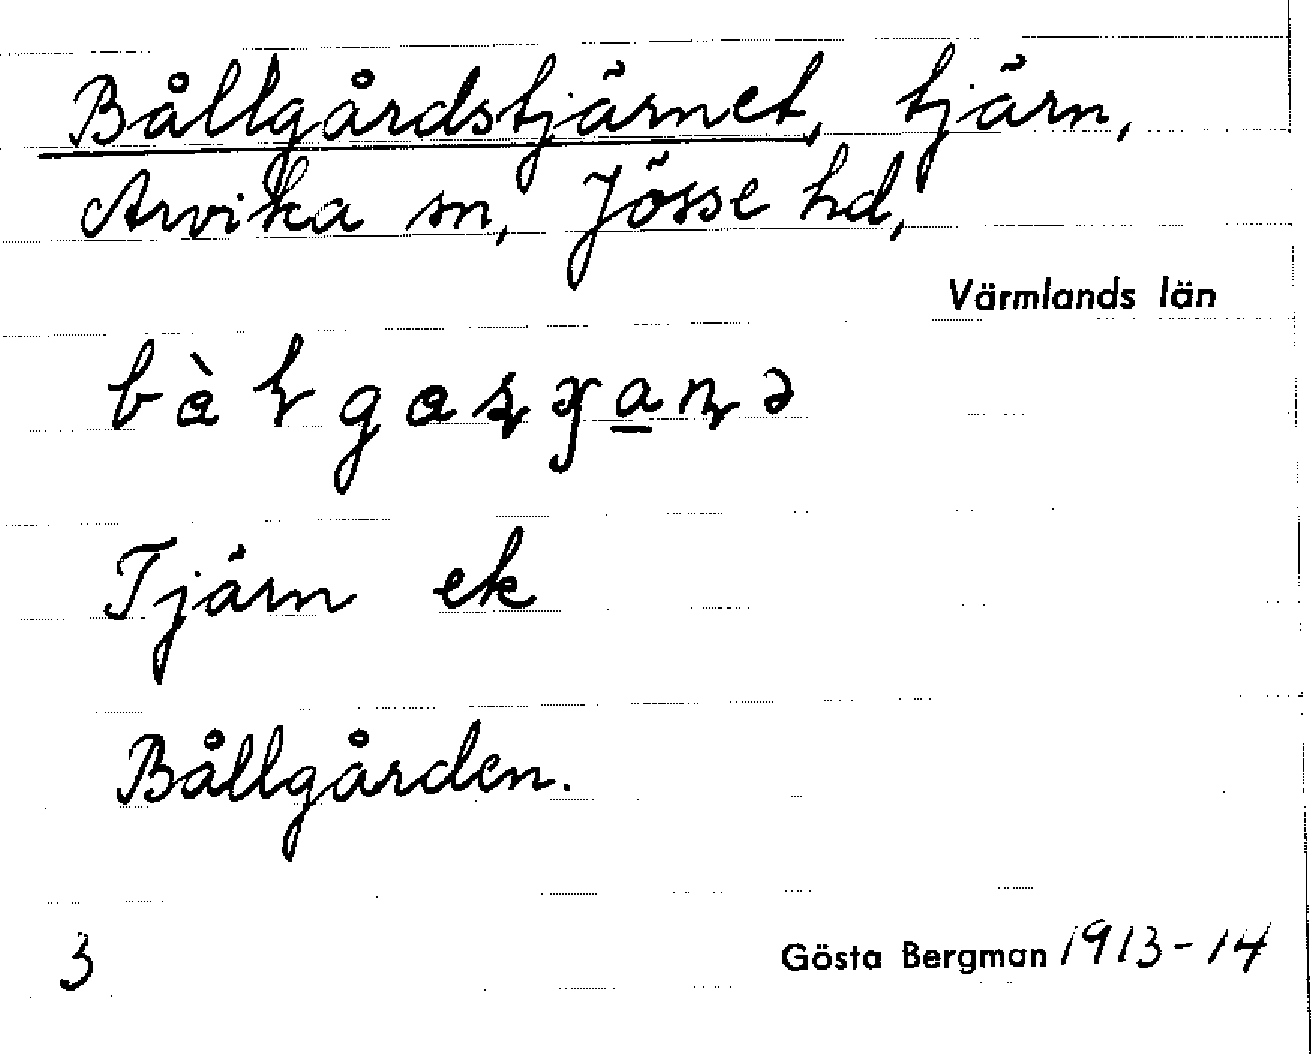 Bållgårdstjärnet, tjärn,
Arvika sn, Jösse hd,
Värmlands län
Tjärn ek
Bållgården.
3 Gösta Bergman 1913-14